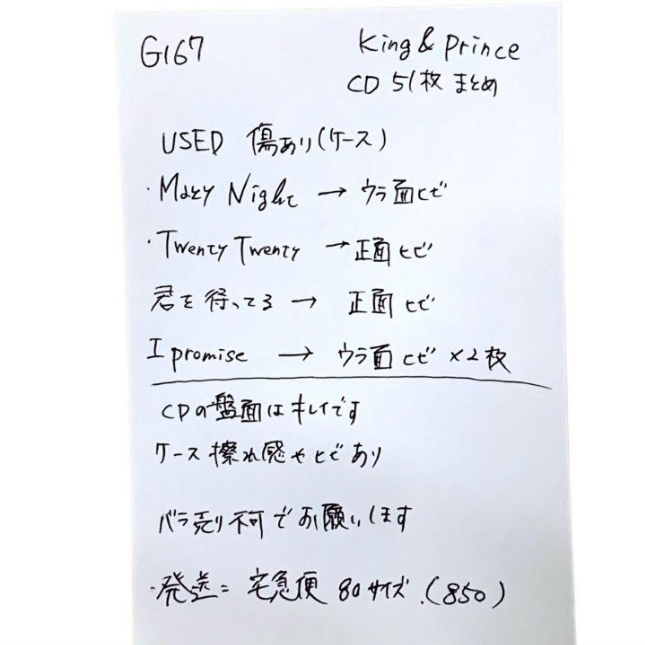 G167
King & Prince
CD 51枚 まとめ
USED 傷あり(ケース)
・Mazy Night → ウラ面ヒビ
・Twenty Twenty → 正面ヒビ
君を待ってる → 正面ヒビ
I promise → ウラ面ヒビ×2枚
CDの盤面はキレイです
ケース擦れ感やヒビあり
バラ売り不可でお願いします
・発送= 宅急便 80サイズ.(850)